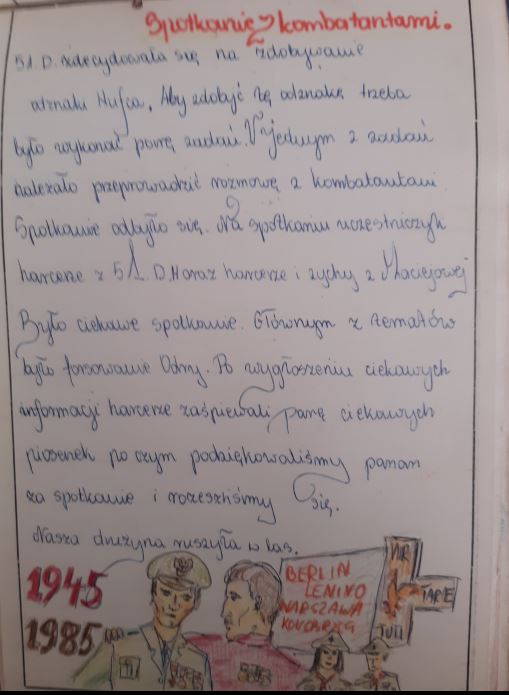 Spotkanie z kombatantami.
51. D. zdecydowała się na zdobywanie
odznaki Hufca. Aby zdobyć tę odznakę trzeba
było wykonać parę zadań. W jednym z zadań
należało przeprowadzić rozmowę z kombatantami.
Spotkanie odbyło się. Na spotkaniu uczestniczyli
harcerze z 51. D.H oraz harcerze i zuchy z Maciejowej
Było ciekawe spotkanie. Głównym z tematów
było forsowanie Odry. Po wygłoszeniu ciekawych
informacji harcerze zaśpiewali parę ciekawych
piosenek po czym podziękowaliśmy panom
za spotkanie i rozeszliśmy się.
Nasza drużyna ruszyła w las.
1945
1985
BERLIN
LENINO
WARSZAWA
KOŁOBRZEG
VIR
TARIE
TUTI